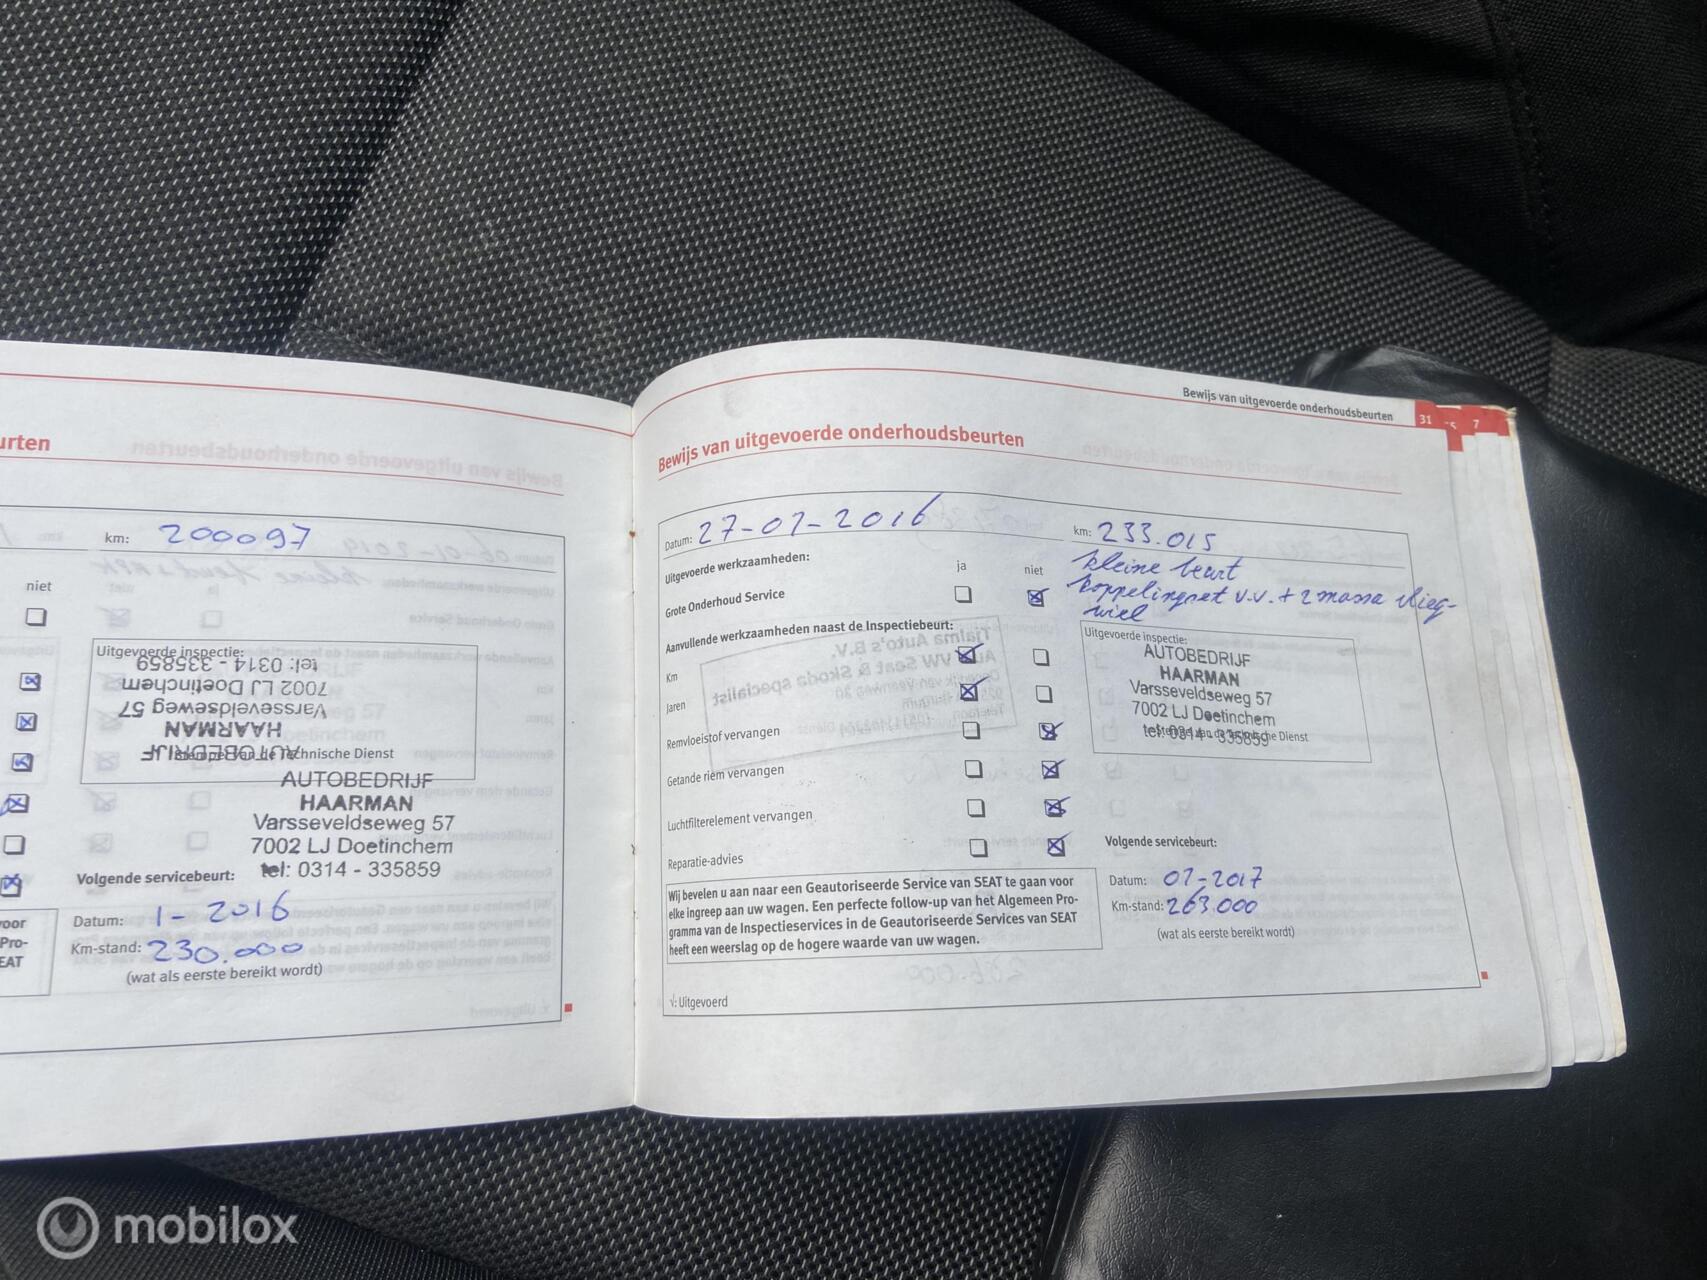 urten
km: 200097
niet
Uitgevoerde inspectie:
tel: 0314 - 335859
7002 LJ Doetinchem
Varsseveldseweg 57
HAARMAN
AUTOBEDRIJF
Technische Dienst
AUTOBEDRIJF
HAARMAN
Varsseveldseweg 57
7002 LJ Doetinchem
tel: 0314 - 335859
Volgende servicebeurt:
Datum: 1-2016
Km-stand: 230.000
(wat als eerste bereikt wordt)
voor
Pro-
EAT
Bewijs van uitgevoerde onderhoudsbeurten 31
7
Bewijs van uitgevoerde onderhoudsbeurten
Datum: 27-01-2016 km: 233.015
Uitgevoerde werkzaamheden: ja niet
kleine beurt
koppelingset v.v. + 2 massa vlieg-
wiel
Grote Onderhoud Service
Aanvullende werkzaamheden naast de Inspectiebeurt:
Km
Jaren
Remvloeistof vervangen
Getande riem vervangen
Luchtfilterelement vervangen
Reparatie-advies
Uitgevoerde inspectie:
AUTOBEDRIJF
HAARMAN
Varsseveldseweg 57
7002 LJ Doetinchem
tel: 0314 - 335859
Technische Dienst
Volgende servicebeurt:
Datum: 01-2017
Km-stand: 263.000
(wat als eerste bereikt wordt)
Wij bevelen u aan naar een Geautoriseerde Service van SEAT te gaan voor
elke ingreep aan uw wagen. Een perfecte follow-up van het Algemeen Pro-
gramma van de Inspectieservices in de Geautoriseerde Services van SEAT
heeft een weerslag op de hogere waarde van uw wagen.
√: Uitgevoerd
mobilox